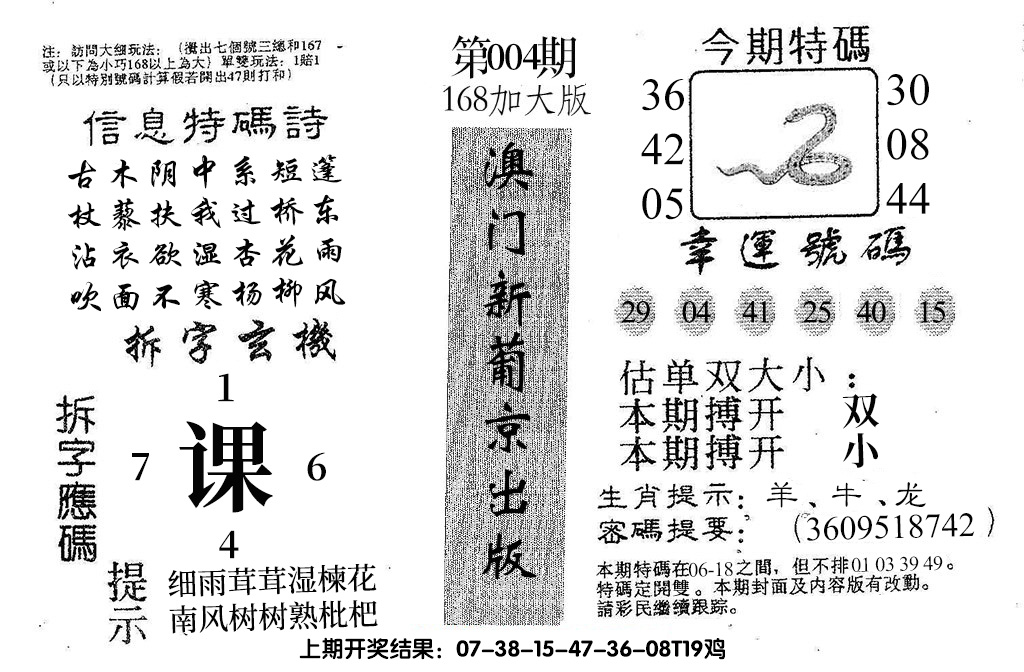 注：訪問大细玩法：（攪出七個號三總和167
或以下為小巧168以上為大）單雙玩法：1賠1
（只以特別號碼計算假若開出47則打和）
信息特碼詩
古木阴中系短蓬
杖藜扶我过桥东
沾衣欲湿杏花雨
吹面不寒杨柳风
拆字玄機
拆字應碼
1
7 课 6
4
提示
细雨茸茸湿楝花
南风树树熟枇杷
第004期
168加大版
澳门新葡京出版
今期特碼
36 30
42 08
05 44
幸運號碼
29 04 41 25 40 15
估单双大小：
本期搏开 双
本期搏开 小
生肖提示：羊、牛、龙
密碼提要：（3609518742）
本期特碼在06-18之間，但不排01 03 39 49。
特碼定開雙。本期封面及内容版有改動。
請彩民繼續跟踪。
上期开奖结果：07-38-15-47-36-08T19鸡